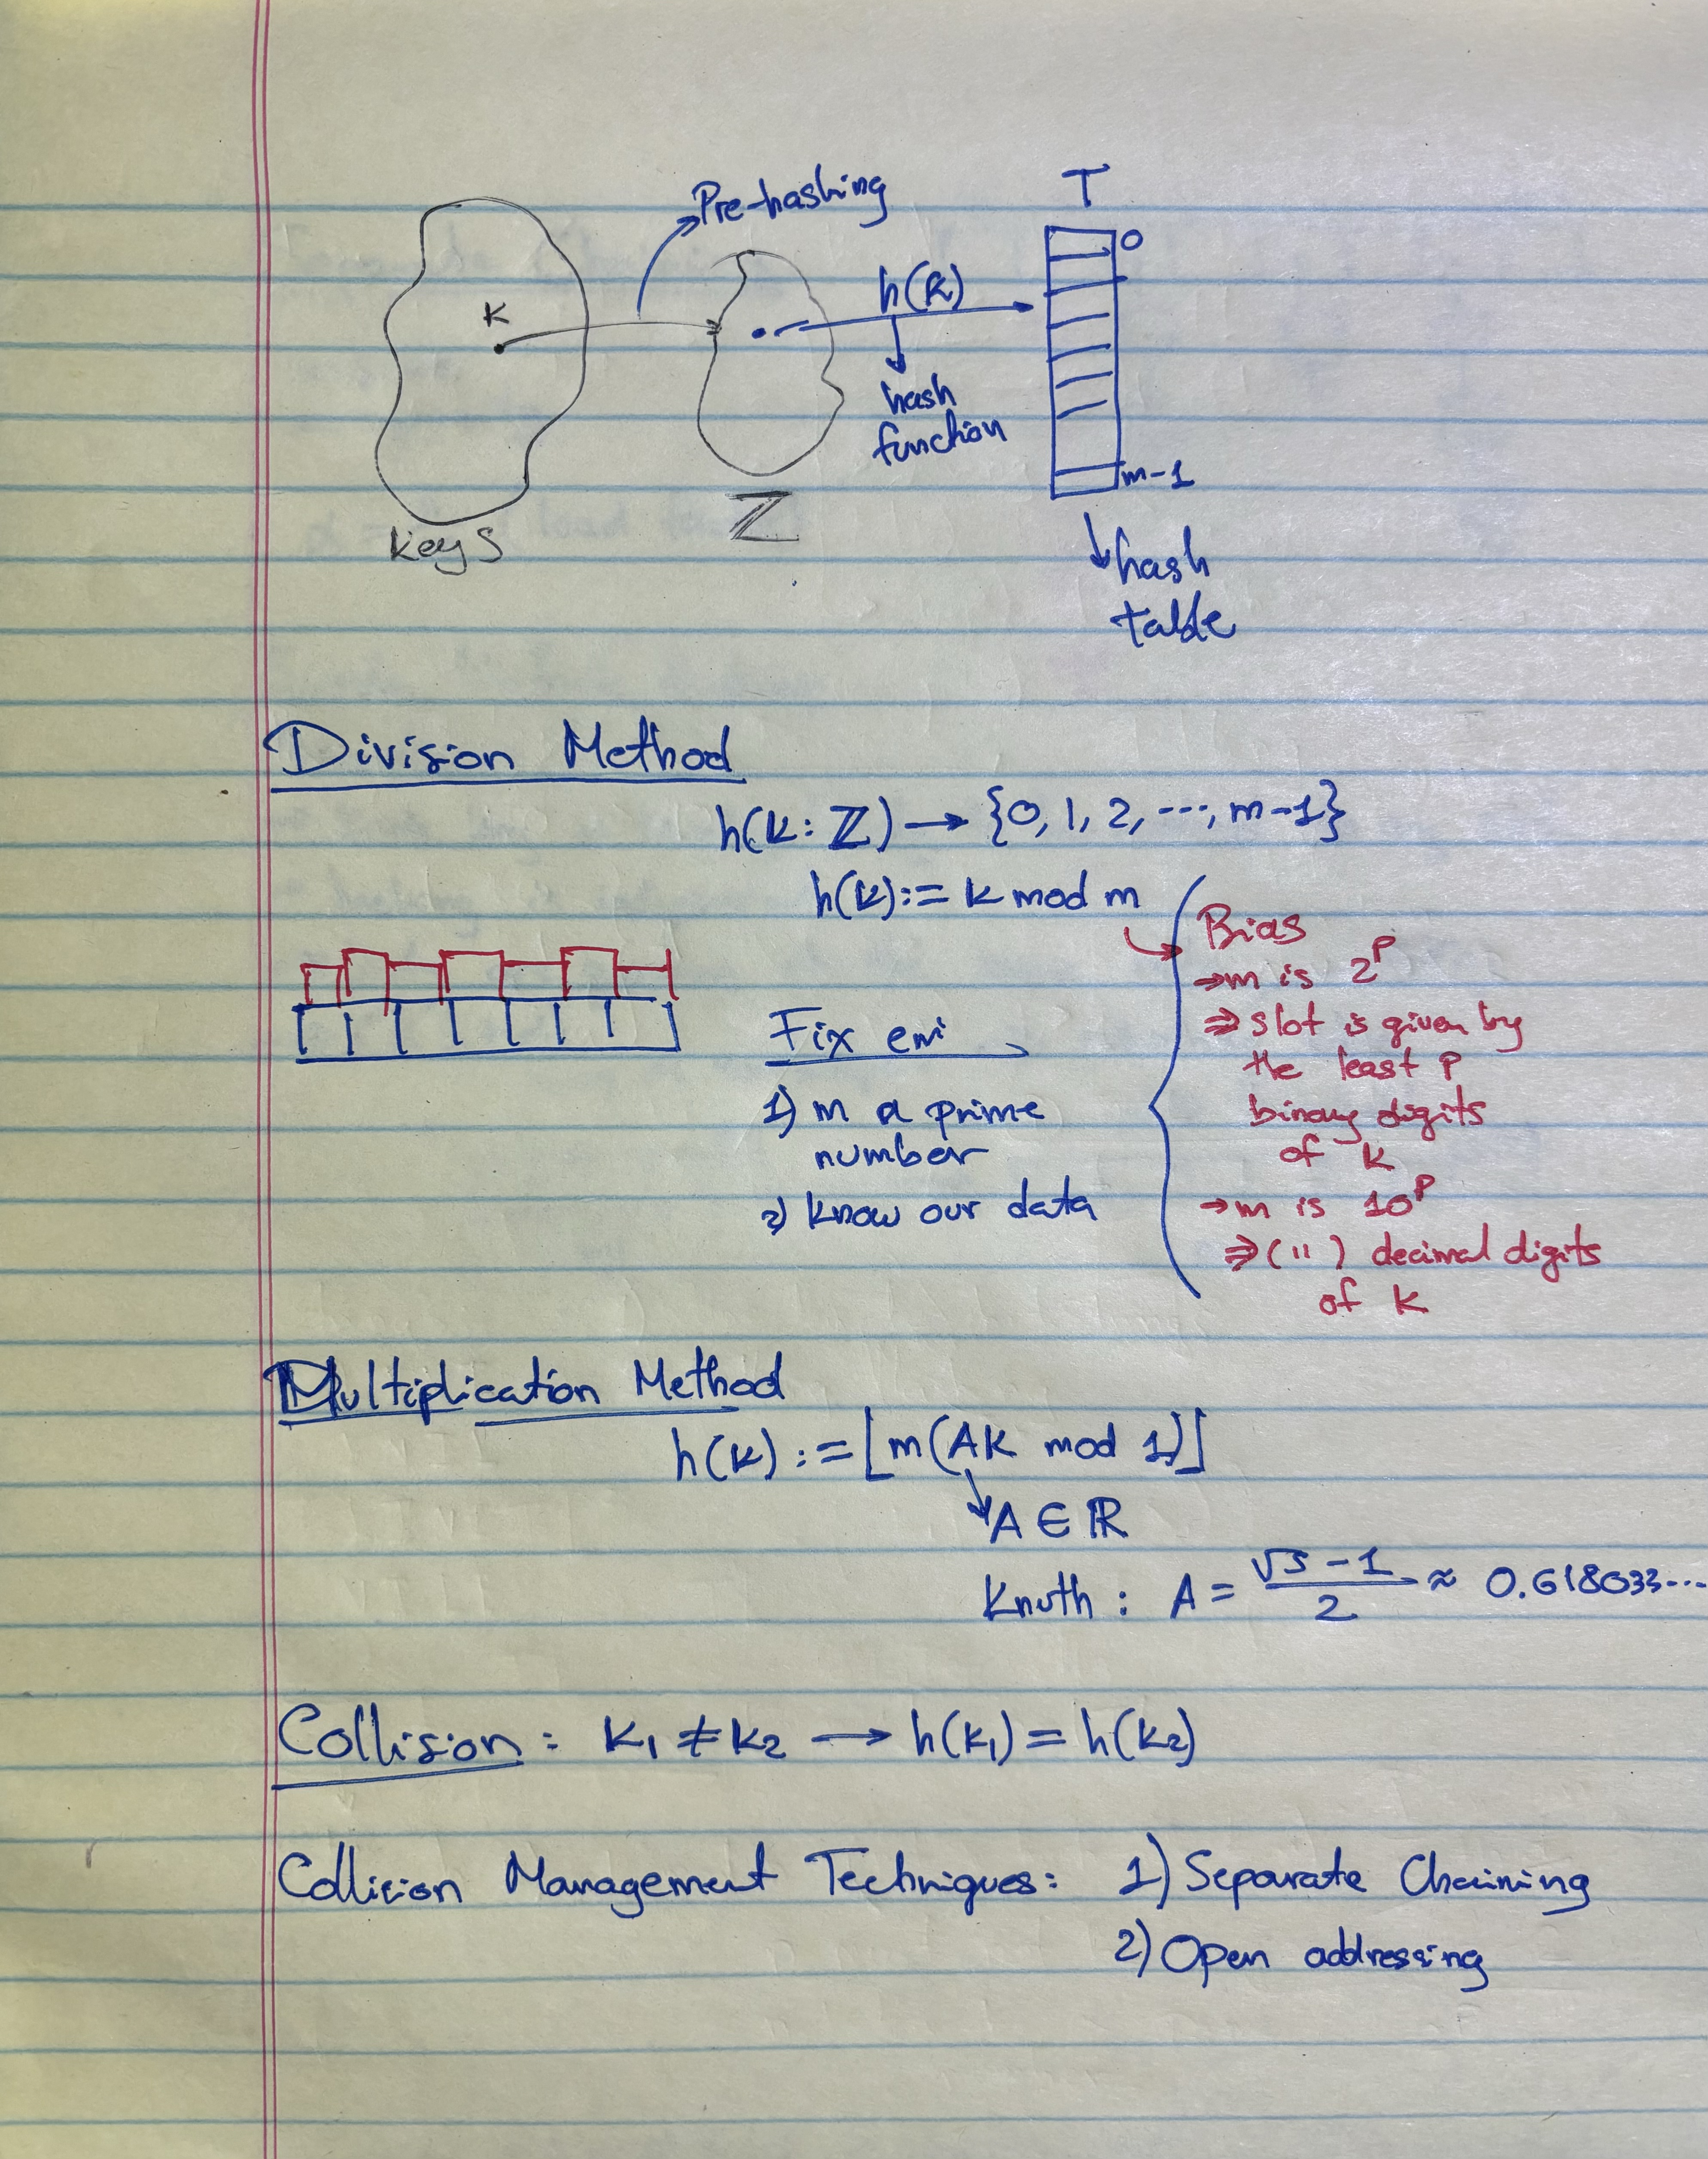 Pre-hashing
T
0
K
h(k)
hash
function
m-1
keys
ℤ
hash
table
Division Method
h(k: ℤ) → {0, 1, 2, ..., m-1}
h(k) := k mod m
Bias
→ m is 2^p
⇒ slot is given by
the least p
binary digits
of k
→ m is 10^p
⇒ (") decimal digits
of k
Fix em
1) m a prime
number
2) know our data
Multiplication Method
h(k) := ⌊m(AK mod 1)⌋
A ∈ ℝ
Knuth : A = (√5 - 1)/2 ≈ 0.618033...
Collision : K₁ ≠ K₂ → h(k₁) = h(k₂)
Collision Management Techniques: 1) Separate Chaining
2) Open addressing